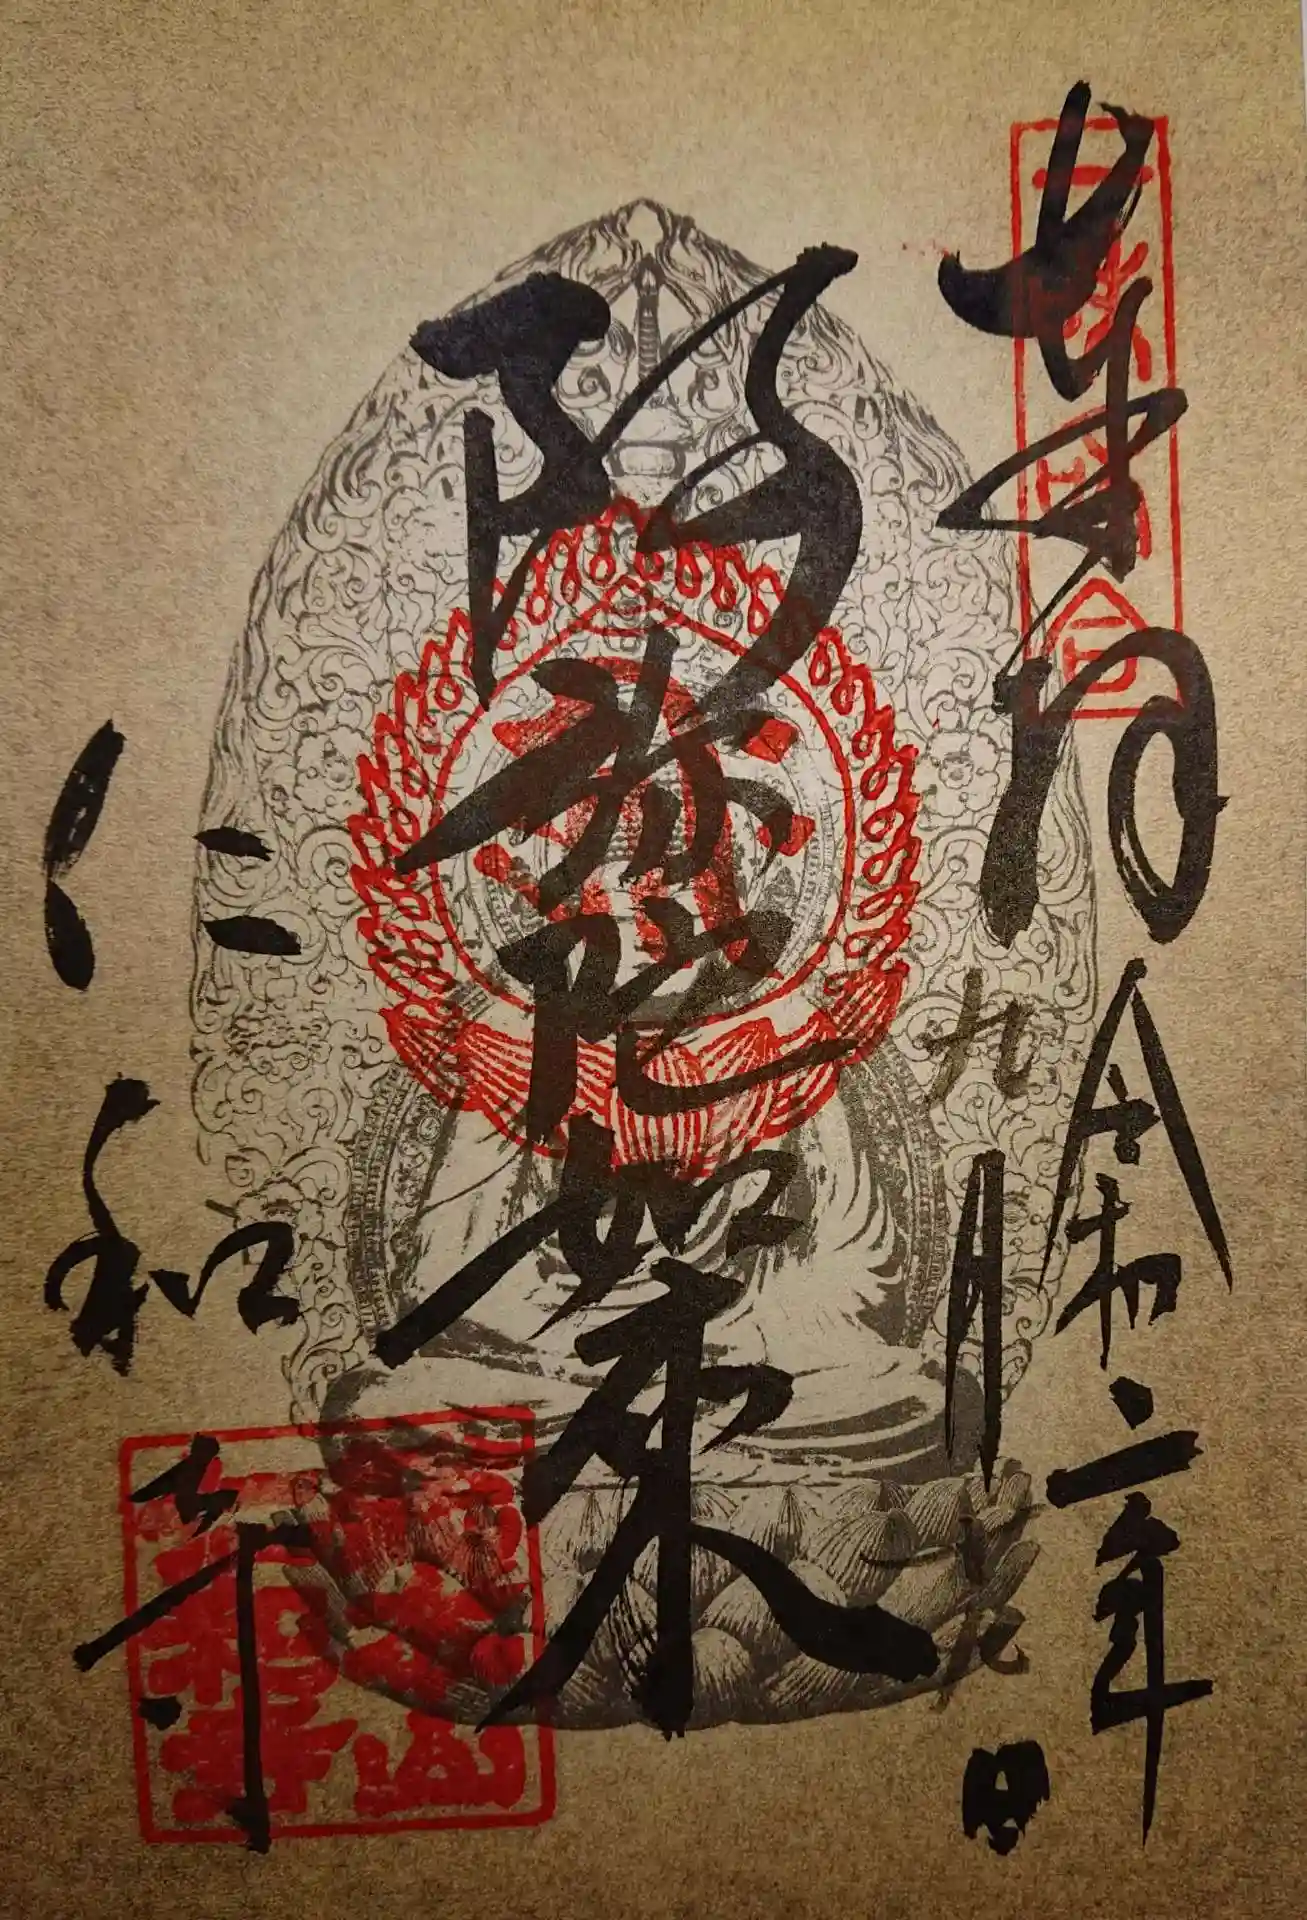 奉拝
令和二年
九月十九日
阿弥陀如来
仁和寺